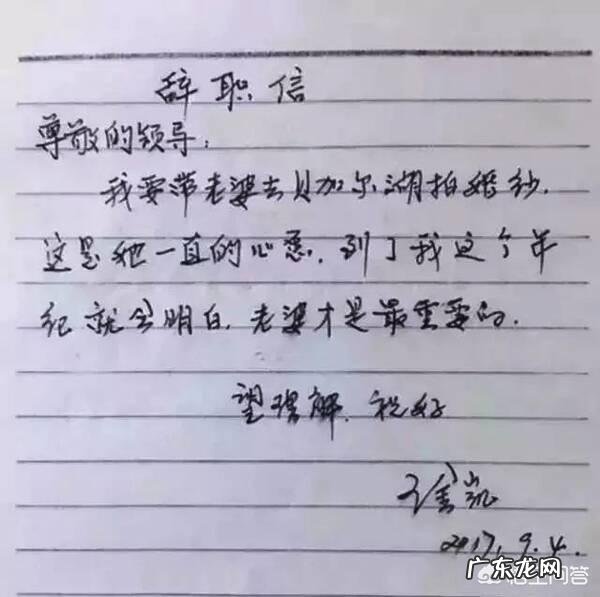 辞职信
尊敬的领导：
我要带老婆去贝加尔湖拍婚纱.
这是她一直的心愿.到了我这个年
纪就会明白.老婆才是最重要的.
望理解.祝好
凯
2017.9.4.
广东龙网
悟空问答